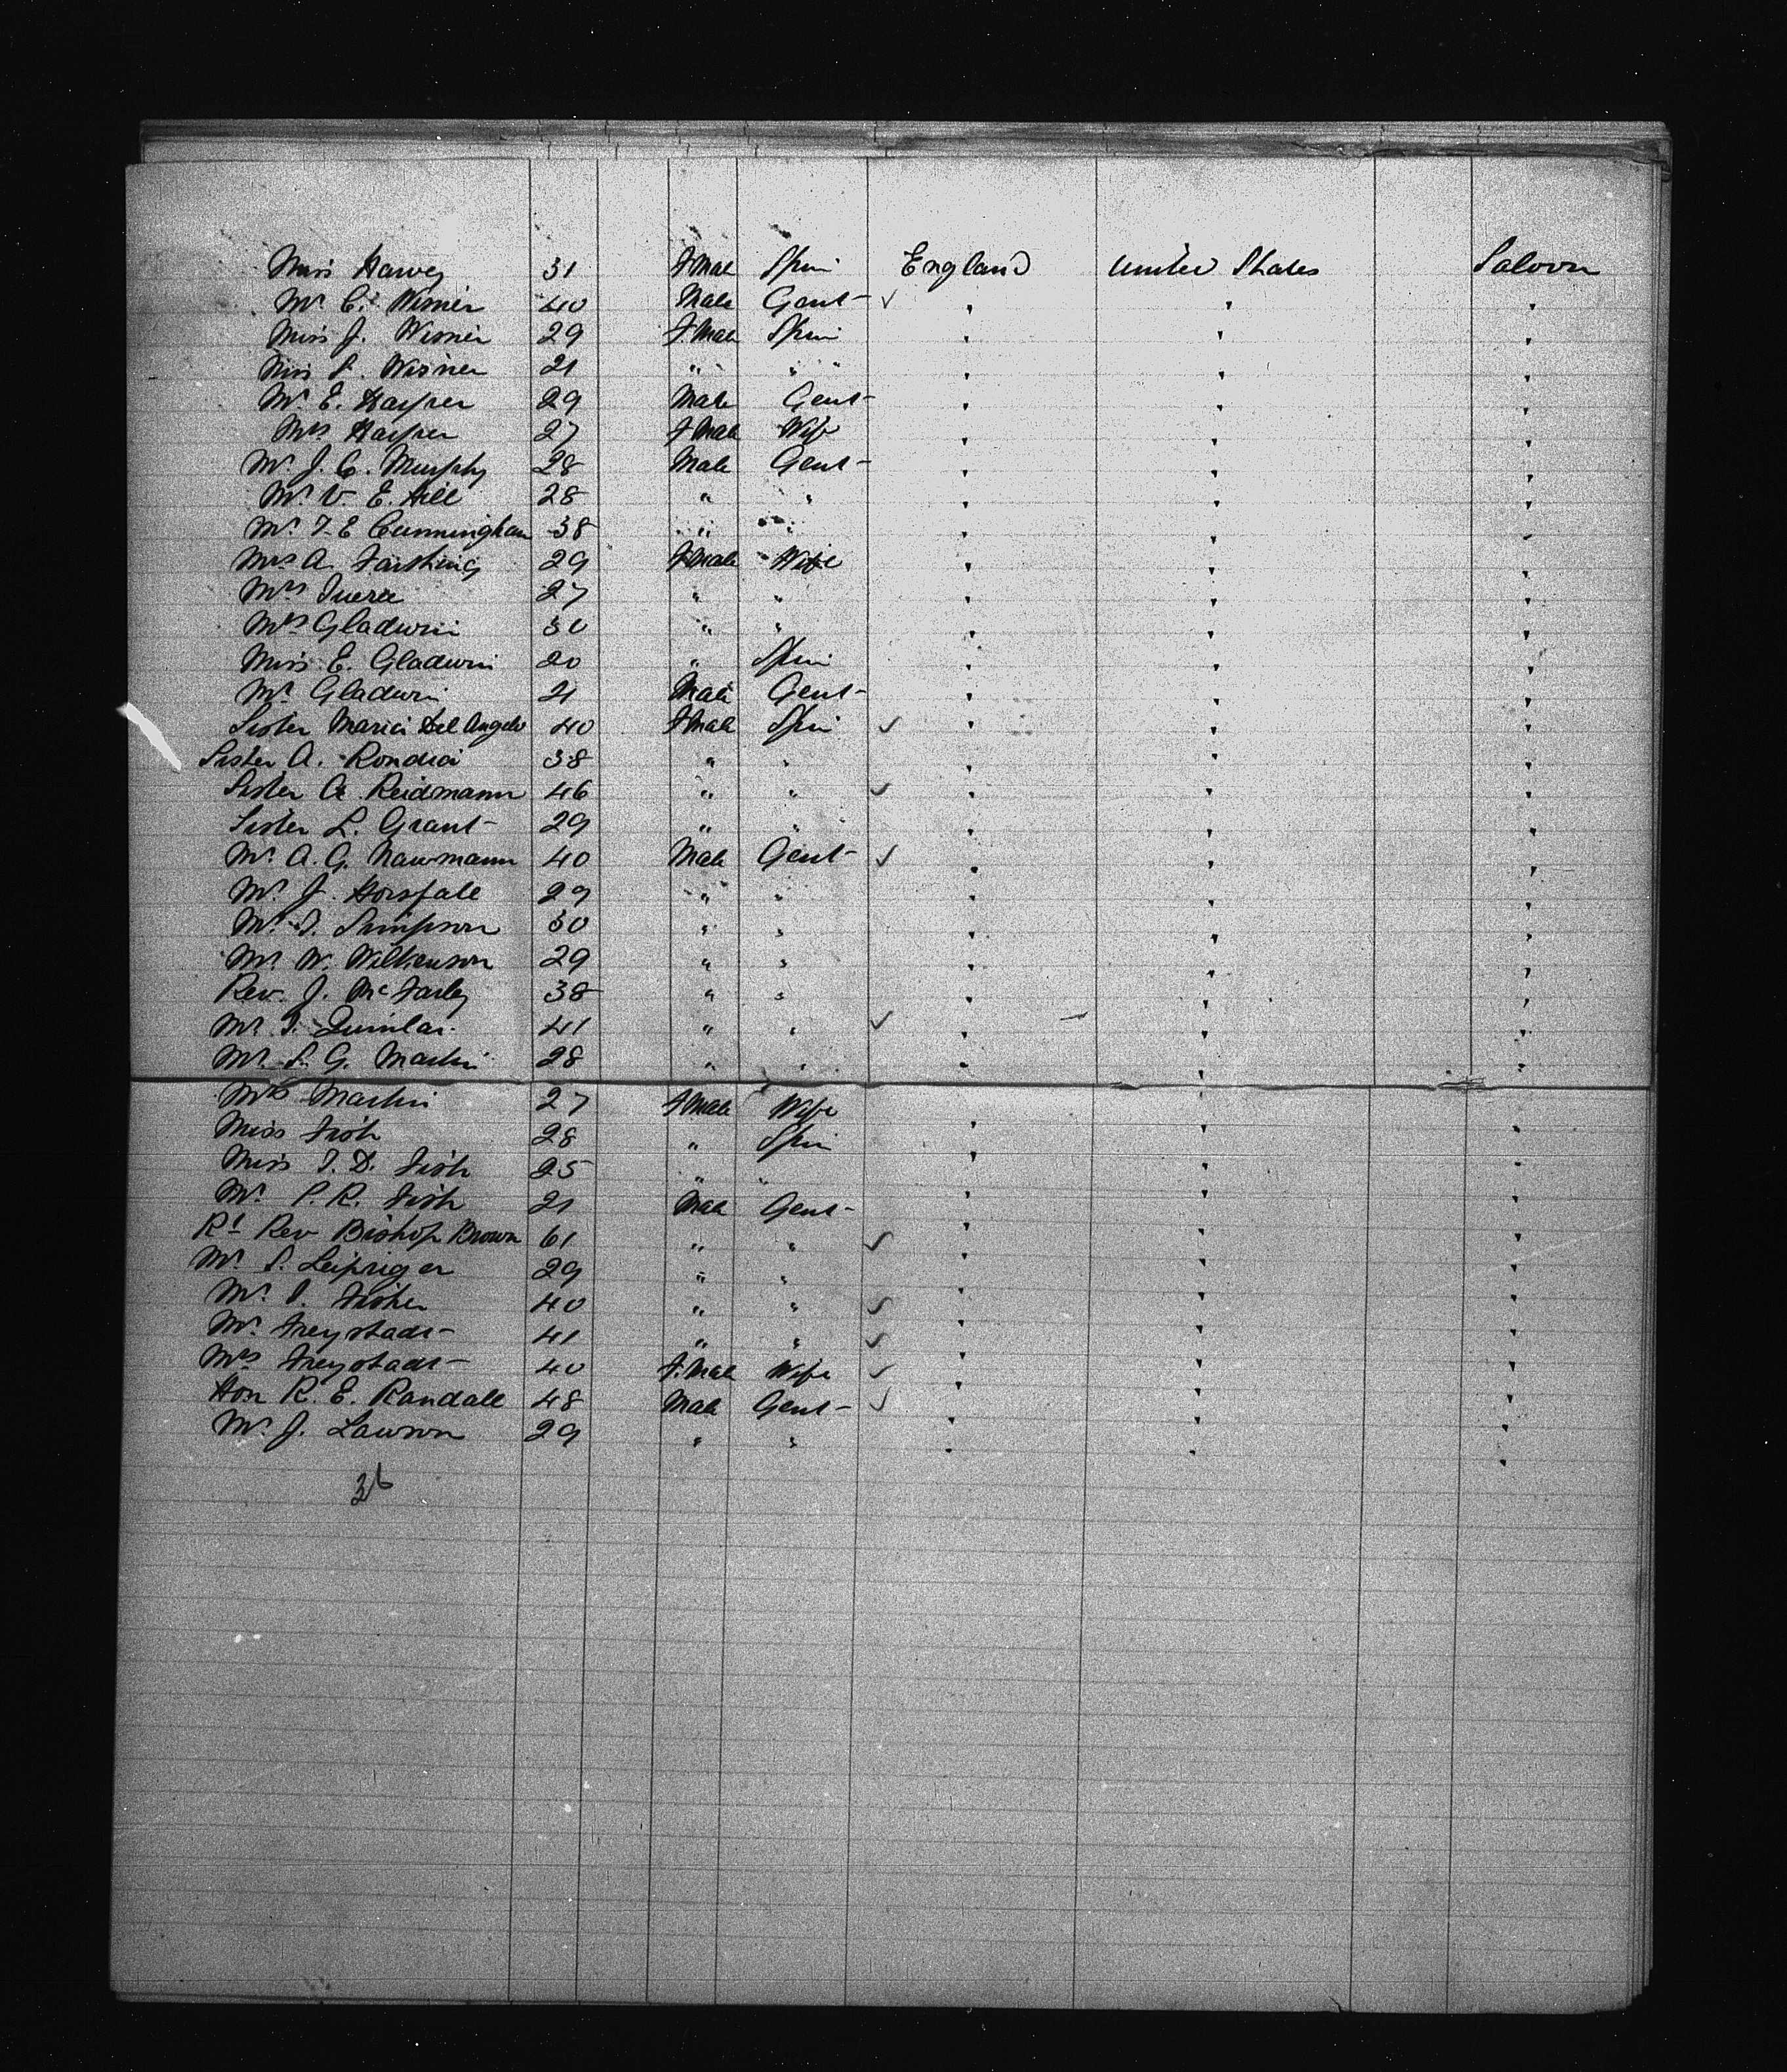 Miss Harvey 31 F Male Spin England United States Saloon
Mr C. Wisner 40 Male Gent ✓ " " "
Miss J. Wisner 29 F Male Spin " " "
Miss L. Wisner 21 " " " " "
Mr E. Harper 29 Male Gent " " "
Mrs Harper 27 F Male Wife " " "
Mr J. C. Murphy 28 Male Gent " " "
Mr V. E. Hill 28 " " " " "
Mr T. E Cunningham 38 " " " " "
Mrs A. Farthing 29 F Male Wife " " "
Mrs 27 " " " " "
Mrs Gladwin 30 " " " " "
Miss E. Gladwin 20 " Spin " " "
Mr Gladwin 21 Male Gent " " "
Sister Maria Del Angelo 40 F Male Spin ✓ " " "
Sister A. Rondia 38 " " " " "
Sister C. Reidmann 46 " " ✓ " " "
Sister L. Grant 29 " " " " "
Mr A. G. Naumann 40 Male Gent ✓ " " "
Mr J. Horsfall 29 " " " " "
Mr T. Simpson 30 " " " " "
Mr W. Wilkenson 29 " " " " "
Rev. J. McFarley 38 " " " " "
Mr T. Quinlan 41 " " ✓ " " "
Mr S. G. Martin 28 " " " " "
Mrs Martin 27 F Male Wife " " "
Miss Fish 28 " Spin " " "
Miss I. D. Fish 25 " " " " "
Mr P. R. Fish 21 Male Gent " " "
Rt Rev Bishop Brown 61 " " ✓ " " "
Mr S. Leipziger 29 " " " " "
Mr I. Fisher 40 " " ✓ " " "
Mr Freystadt 41 " " ✓ " " "
Mrs Freystadt 40 F. Male Wife ✓ " " "
Hon R. E. Randall 48 Male Gent ✓ " " "
Mr J. Lawson 29 " " " " "
36